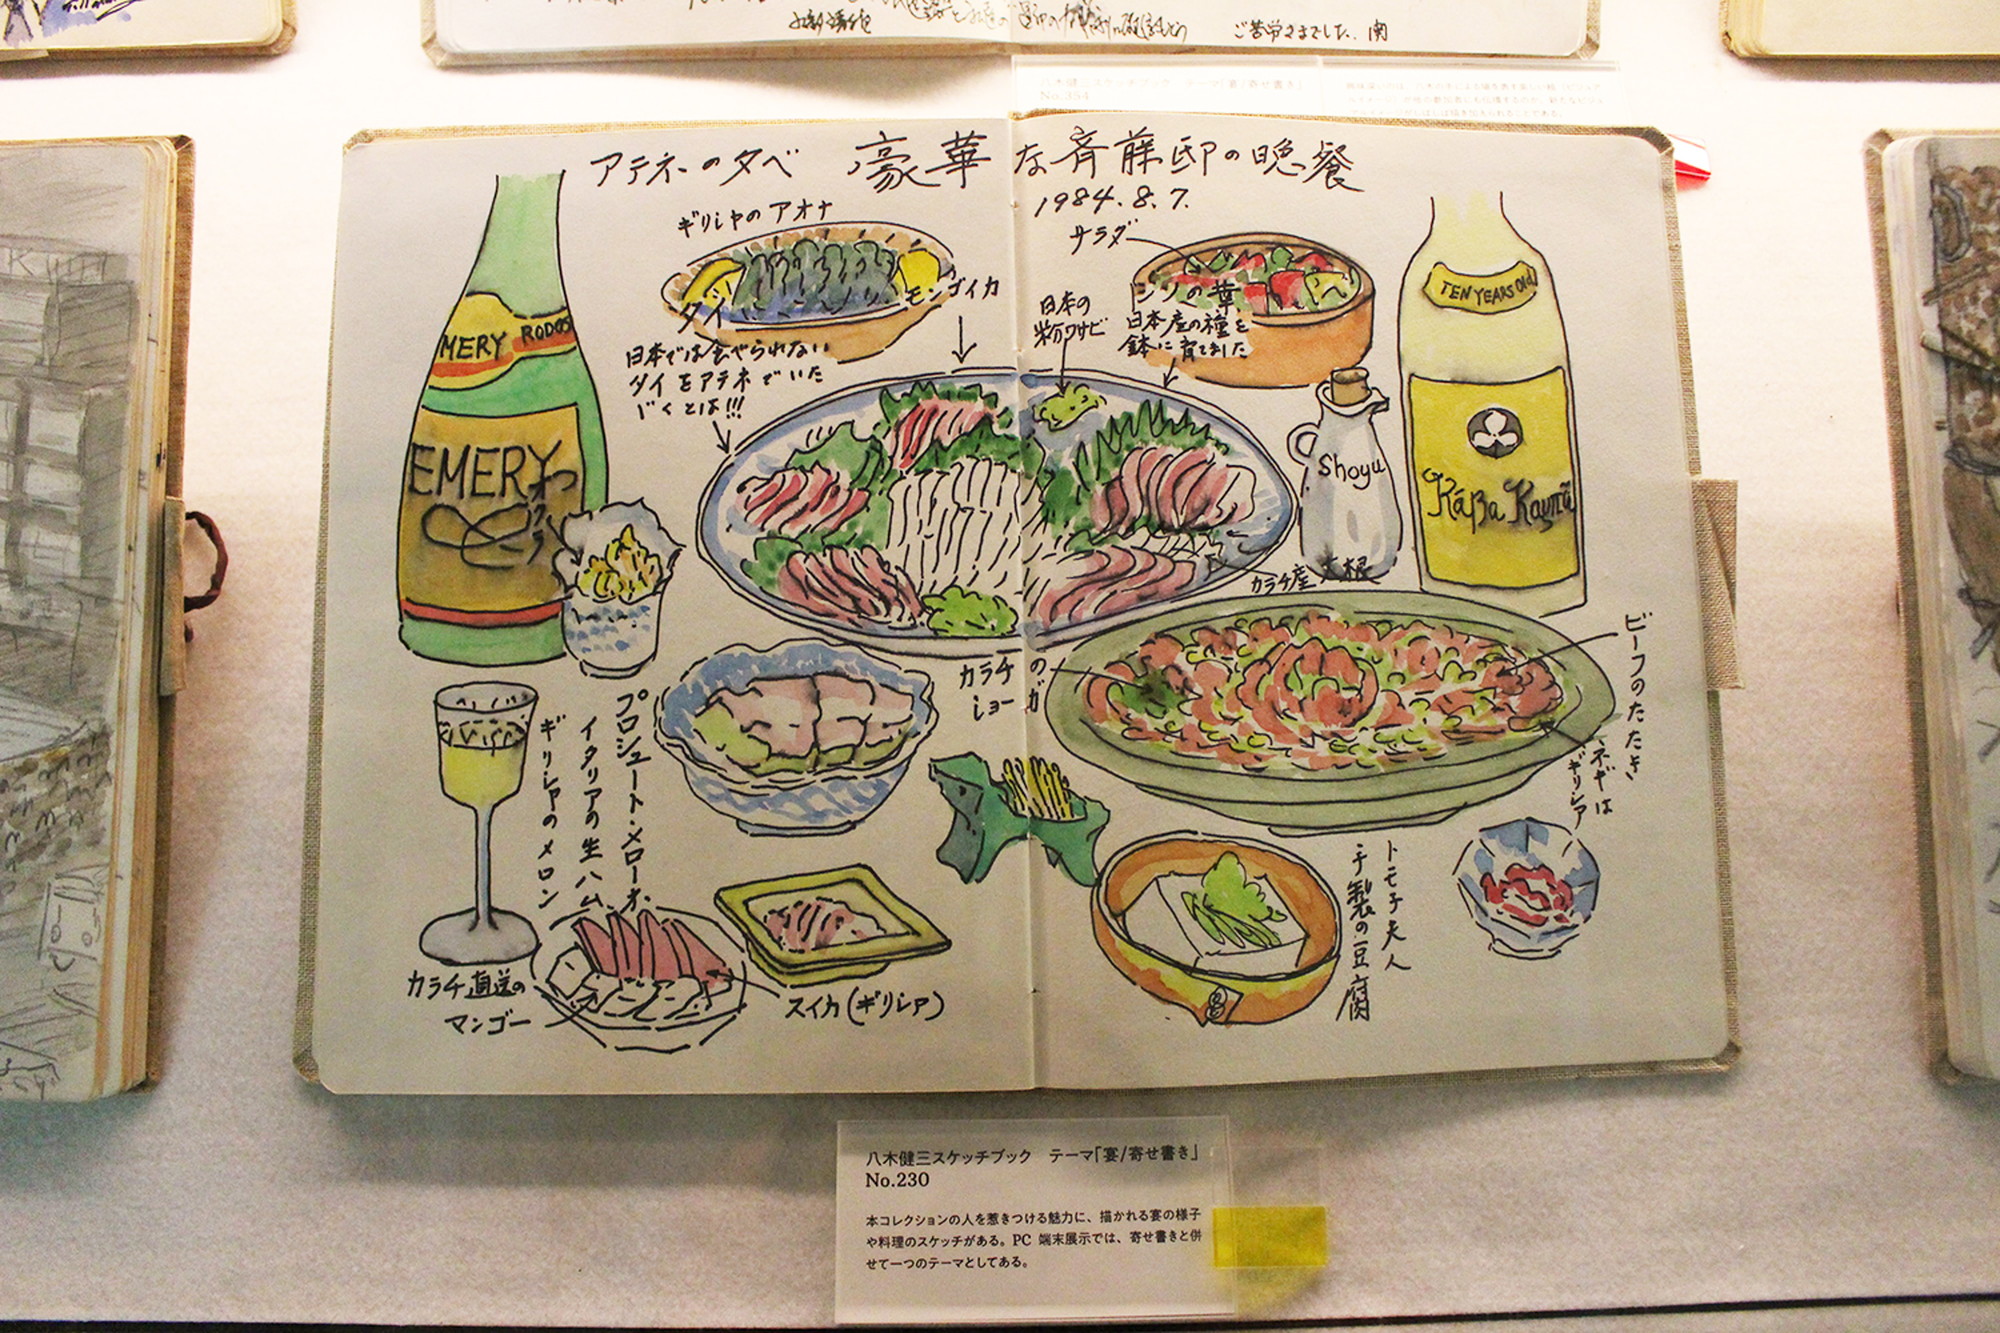 ご苦労さまでした、関
八木健三スケッチブック テーマ「宴/寄せ書き」
No.354
アテネの夕べ 豪華な斉藤邸の晩餐
1984.8.7.
ギリシャのアオナ
サラダ
タイ
モンゴイカ
日本の
粉ワサビ
シソの葉
日本産の種を
鉢に育てました
日本では食べられない
タイをアテネでいた
だくとは!!!
EMERY RODOS
EMERY
TEN YEARS Old
Shoyu
カラチ産大根
カラチの
ガ
ショー
ビーフのたたき
ネギは
ギリシア
プロシュート・メローネ
イタリアの生ハム
ギリシアのメロン
カラチ直送の
マンゴー
スイカ(ギリシア)
トモ子夫人
手製の豆腐
八木健三スケッチブック テーマ「宴/寄せ書き」
No.230
本コレクションの人を惹きつける魅力に、描かれる宴の様子
や料理のスケッチがある。PC 端末展示では、寄せ書きと併
せて一つのテーマとしてある。